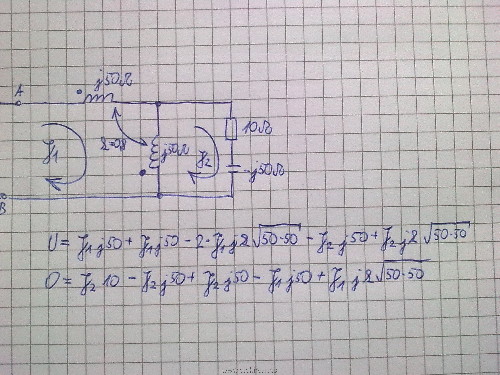 j50Ω
A
10Ω
k=0,8
j50Ω
J₁
J₂
-j50Ω
B
U = J₁j50 + J₁j50 - 2·J₁jk√50·50 - J₂j50 + J₂jk√50·50
0 = J₂10 - J₂j50 + J₂j50 - J₁j50 + J₁jk√50·50